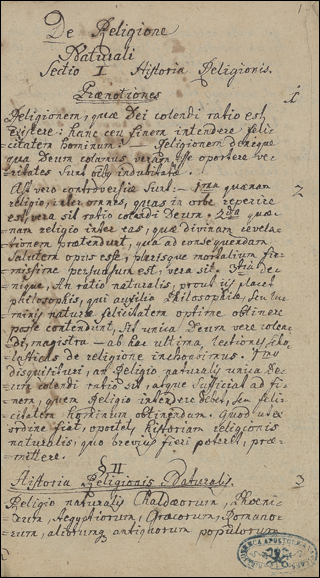 De Religione
Naturali
Sectio I Historia Religionis.
Prænotiones
1
Religionem, quæ Dei colendi ratio est,
existere: hanc ceu finem intendere feli=
citatem hominum: — Religionem denique
qua Deum colimus veram esse oportere ve=
ritates sunt indubitatæ.
Ast vero controversiæ sunt: — 1ma quænam 2
religio, inter omnes, quas in orbe reperire
est, vera sit ratio colendi Deum. 2da quæ=
nam religio inter eas, quæ divinam revela=
tionem prætendunt, qua ad consequendam
Salutem opus esse, plerisque mortalium fir=
missime persuasum est, vera sit. 3tia de=
nique, An ratio naturalis, prout iis placet
philosophis, qui auxilio Philosophiæ, seu lu=
minis naturæ felicitatem optime obtinere
posse contendunt, sit unica Deum vere colen=
di, magistra — ab hac ultima, lectiones scho=
lasticas de religione inchoasimus. Ynu
disquisituri, an Religio naturalis unica De=
um colendi ratio sit, atque sufficiat ad fi=
nem, quem Religio intendere debet, seu feli=
citatem hominum obtinendam. Quod ut ex
ordine fiat, oportet, historiam religionis
naturalis, quo brevius fieri poterit, præ=
mittere.
§ II
Historia Religionis Naturalis. 3
Religio naturalis Chaldæorum, Phœni=
cum, Aegyptiorum, Græcorum, Romano=
rum, aliorumq antiquorum populorum